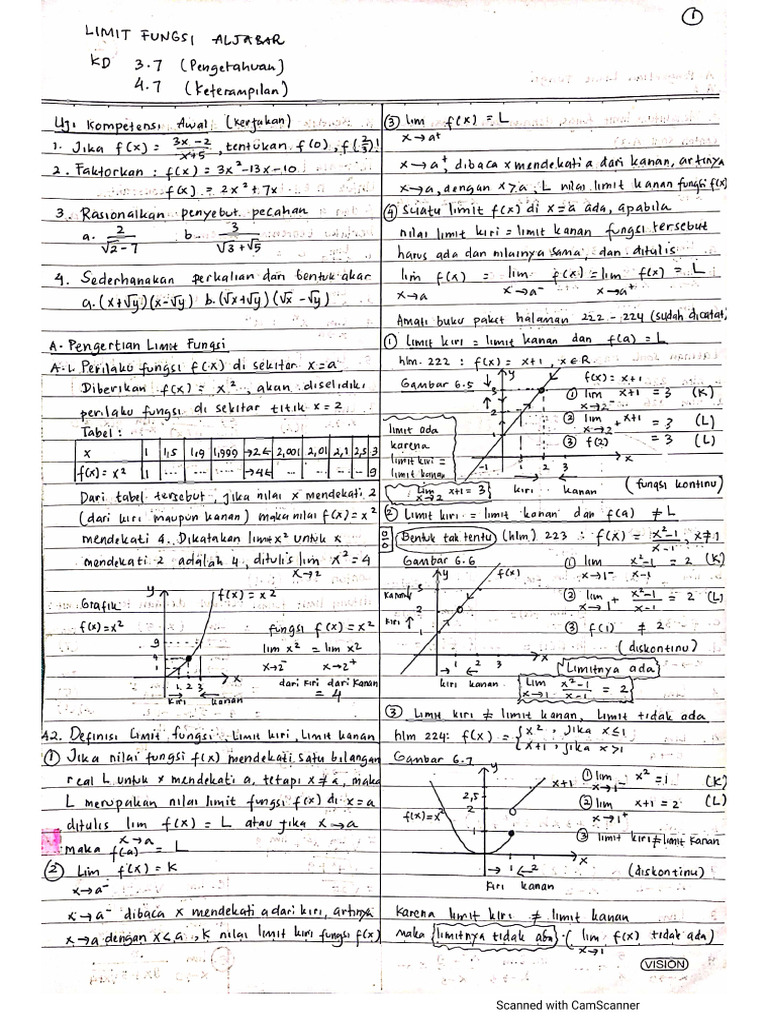 1
LIMIT FUNGSI ALJABAR
KD 3.7 (Pengetahuan)
4.7 (Keterampilan)
Uji Kompetensi Awal (kerjakan)
1. Jika f(x) = (3x-2)/(x+5), tentukan f(0), f(2/3)!
2. Faktorkan : f(x) = 3x²-13x-10
f(x) = 2x²+7x
3. Rasionalkan penyebut pecahan
a. 2/(√2-7) b. 3/(√3+√5)
4. Sederhanakan perkalian dari bentuk akar
a. (x+√y)(x-√y) b. (√x+√y)(√x-√y)
A. Pengertian Limit Fungsi
A.1. Perilaku fungsi f(x) di sekitar x=a
Diberikan f(x) = x², akan diselidiki
perilaku fungsi di sekitar titik x=2
Tabel :
x 1 1,5 1,9 1,999 →2← 2,001 2,01 2,1 2,5 3
f(x)=x² 1 ... ... ... →4← ... ... ... ... 9
Dari tabel tersebut, jika nilai x mendekati 2
(dari kiri maupun kanan) maka nilai f(x)=x²
mendekati 4. Dikatakan limit x² untuk x
mendekati 2 adalah 4, ditulis lim x² = 4
x→2
Grafik
f(x)=x²
y
f(x)=x²
9
4
1
1 2 3
x
kiri kanan
fungsi f(x)=x²
lim x² = lim x²
x→2⁻ x→2⁺
dari kiri dari kanan
= 4
A2. Definisi Limit fungsi, Limit kiri, Limit kanan
① Jika nilai fungsi f(x) mendekati satu bilangan
real L untuk x mendekati a, tetapi x ≠ a, maka
L merupakan nilai limit fungsi f(x) di x=a
ditulis lim f(x) = L atau jika x→a
x→a
maka f(a) = L
② Lim f(x) = K
x→a⁻
x→a⁻ dibaca x mendekati a dari kiri, artinya
x→a dengan x<a, K nilai limit kiri fungsi f(x)
③ lim f(x) = L
x→a⁺
x→a⁺, dibaca x mendekati a dari kanan, artinya
x→a, dengan x>a, L nilai limit kanan fungsi f(x)
④ Suatu limit f(x) di x=a ada, apabila
nilai limit kiri = limit kanan fungsi tersebut
harus ada dan nilainya sama, dan ditulis
lim f(x) = lim f(x) = lim f(x) = L
x→a x→a⁻ x→a⁺
Amati buku paket halaman 222 - 224 (sudah dicatat)
① limit kiri = limit kanan dan f(a) = L
hlm. 222 : f(x) = x+1, x∈R
Gambar 6.5
limit ada
karena
limit kiri =
limit kanan
Lim x+1 = 3
x→2
y
3
2
1
-1 1 2 3 x
kiri kanan
f(x) = x+1
① lim x+1 = 3 (K)
x→2⁻
② lim x+1 = 3 (L)
x→2⁺
③ f(2) = 3 (L)
(fungsi kontinu)
② Limit kiri = limit kanan dan f(a) ≠ L
0/0 Bentuk tak tentu (hlm) 223 : f(x) = (x²-1)/(x-1), x≠1
Gambar 6.6
y
f(x)
kanan
2
kiri
1 2 3 x
kiri kanan
① lim (x²-1)/(x-1) = 2 (K)
x→1⁻
② lim (x²-1)/(x-1) = 2 (L)
x→1⁺
③ f(1) ≠ 2
(diskontinu)
Limitnya ada
Lim (x²-1)/(x-1) = 2
x→1
③ Limit kiri ≠ limit kanan, Limit tidak ada
hlm 224: f(x) = { x², jika x≤1
x+1, jika x>1
Gambar 6.7
y
2,5
2
1
f(x)=x²
x+1
1 2 x
kiri kanan
① lim x² = 1 (K)
x→1⁻
② lim x+1 = 2 (L)
x→1⁺
③ limit kiri ≠ limit kanan
(diskontinu)
Karena limit kiri ≠ limit kanan
maka {limitnya tidak ada}. (lim f(x) tidak ada)
x→1
VISION
Scanned with CamScanner